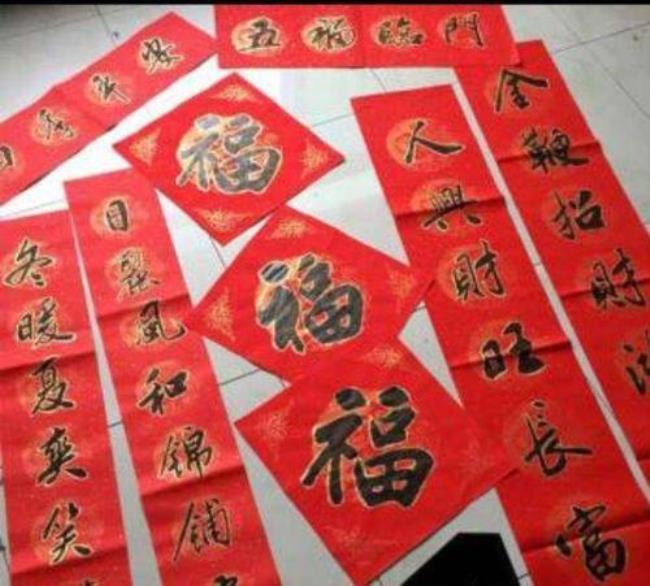 五福臨門
平安
福
福
福
金鞭招財
人興財旺長富
日麗風和錦鋪
冬暖夏爽笑